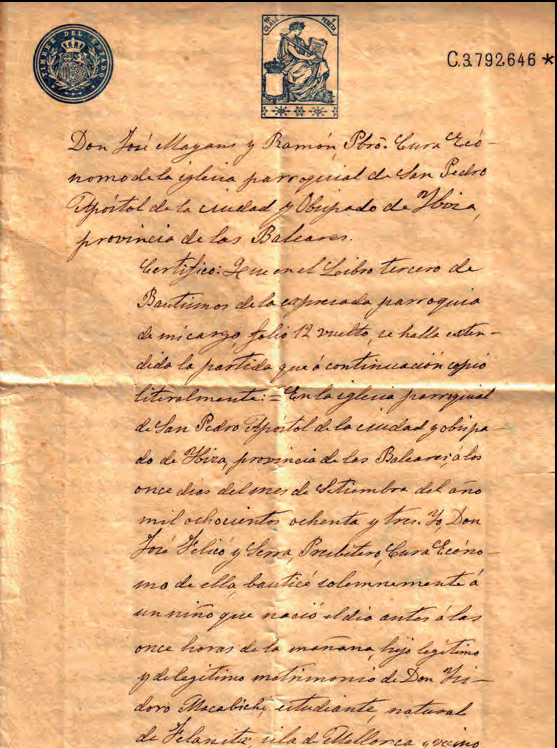 TIMBRE DEL ESTADO
C.3.792646 *
Don José Mayans y Ramón, Pbro. Cura Ecó-
nomo de la iglesia parroquial de San Pedro
Apóstol de la ciudad y Obispado de Ibiza,
provincia de las Baleares.
Certifico: Que en el Libro tercero de
Bautismos de la expresada parroquia
de mi cargo, folio 12 vuelto, se halla exten-
dida la partida que á continuación copio
literalmente: = En la iglesia parroquial
de San Pedro Apóstol de la ciudad y obispa-
do de Ibiza, provincia de las Baleares, á los
once dias del mes de Setiembre del año
mil ochocientos ochenta y tres. Yo, Don
José Felió y Serra, Presbítero, Cura Ecóno-
mo de ella, bauticé solemnemente á
un niño que nació el dia antes á las
once horas de la mañana, hijo legítimo
y de legítimo matrimonio de Don Isi-
doro Macabich, estudiante, natural
de Felanitx, isla de Mallorca y vecino